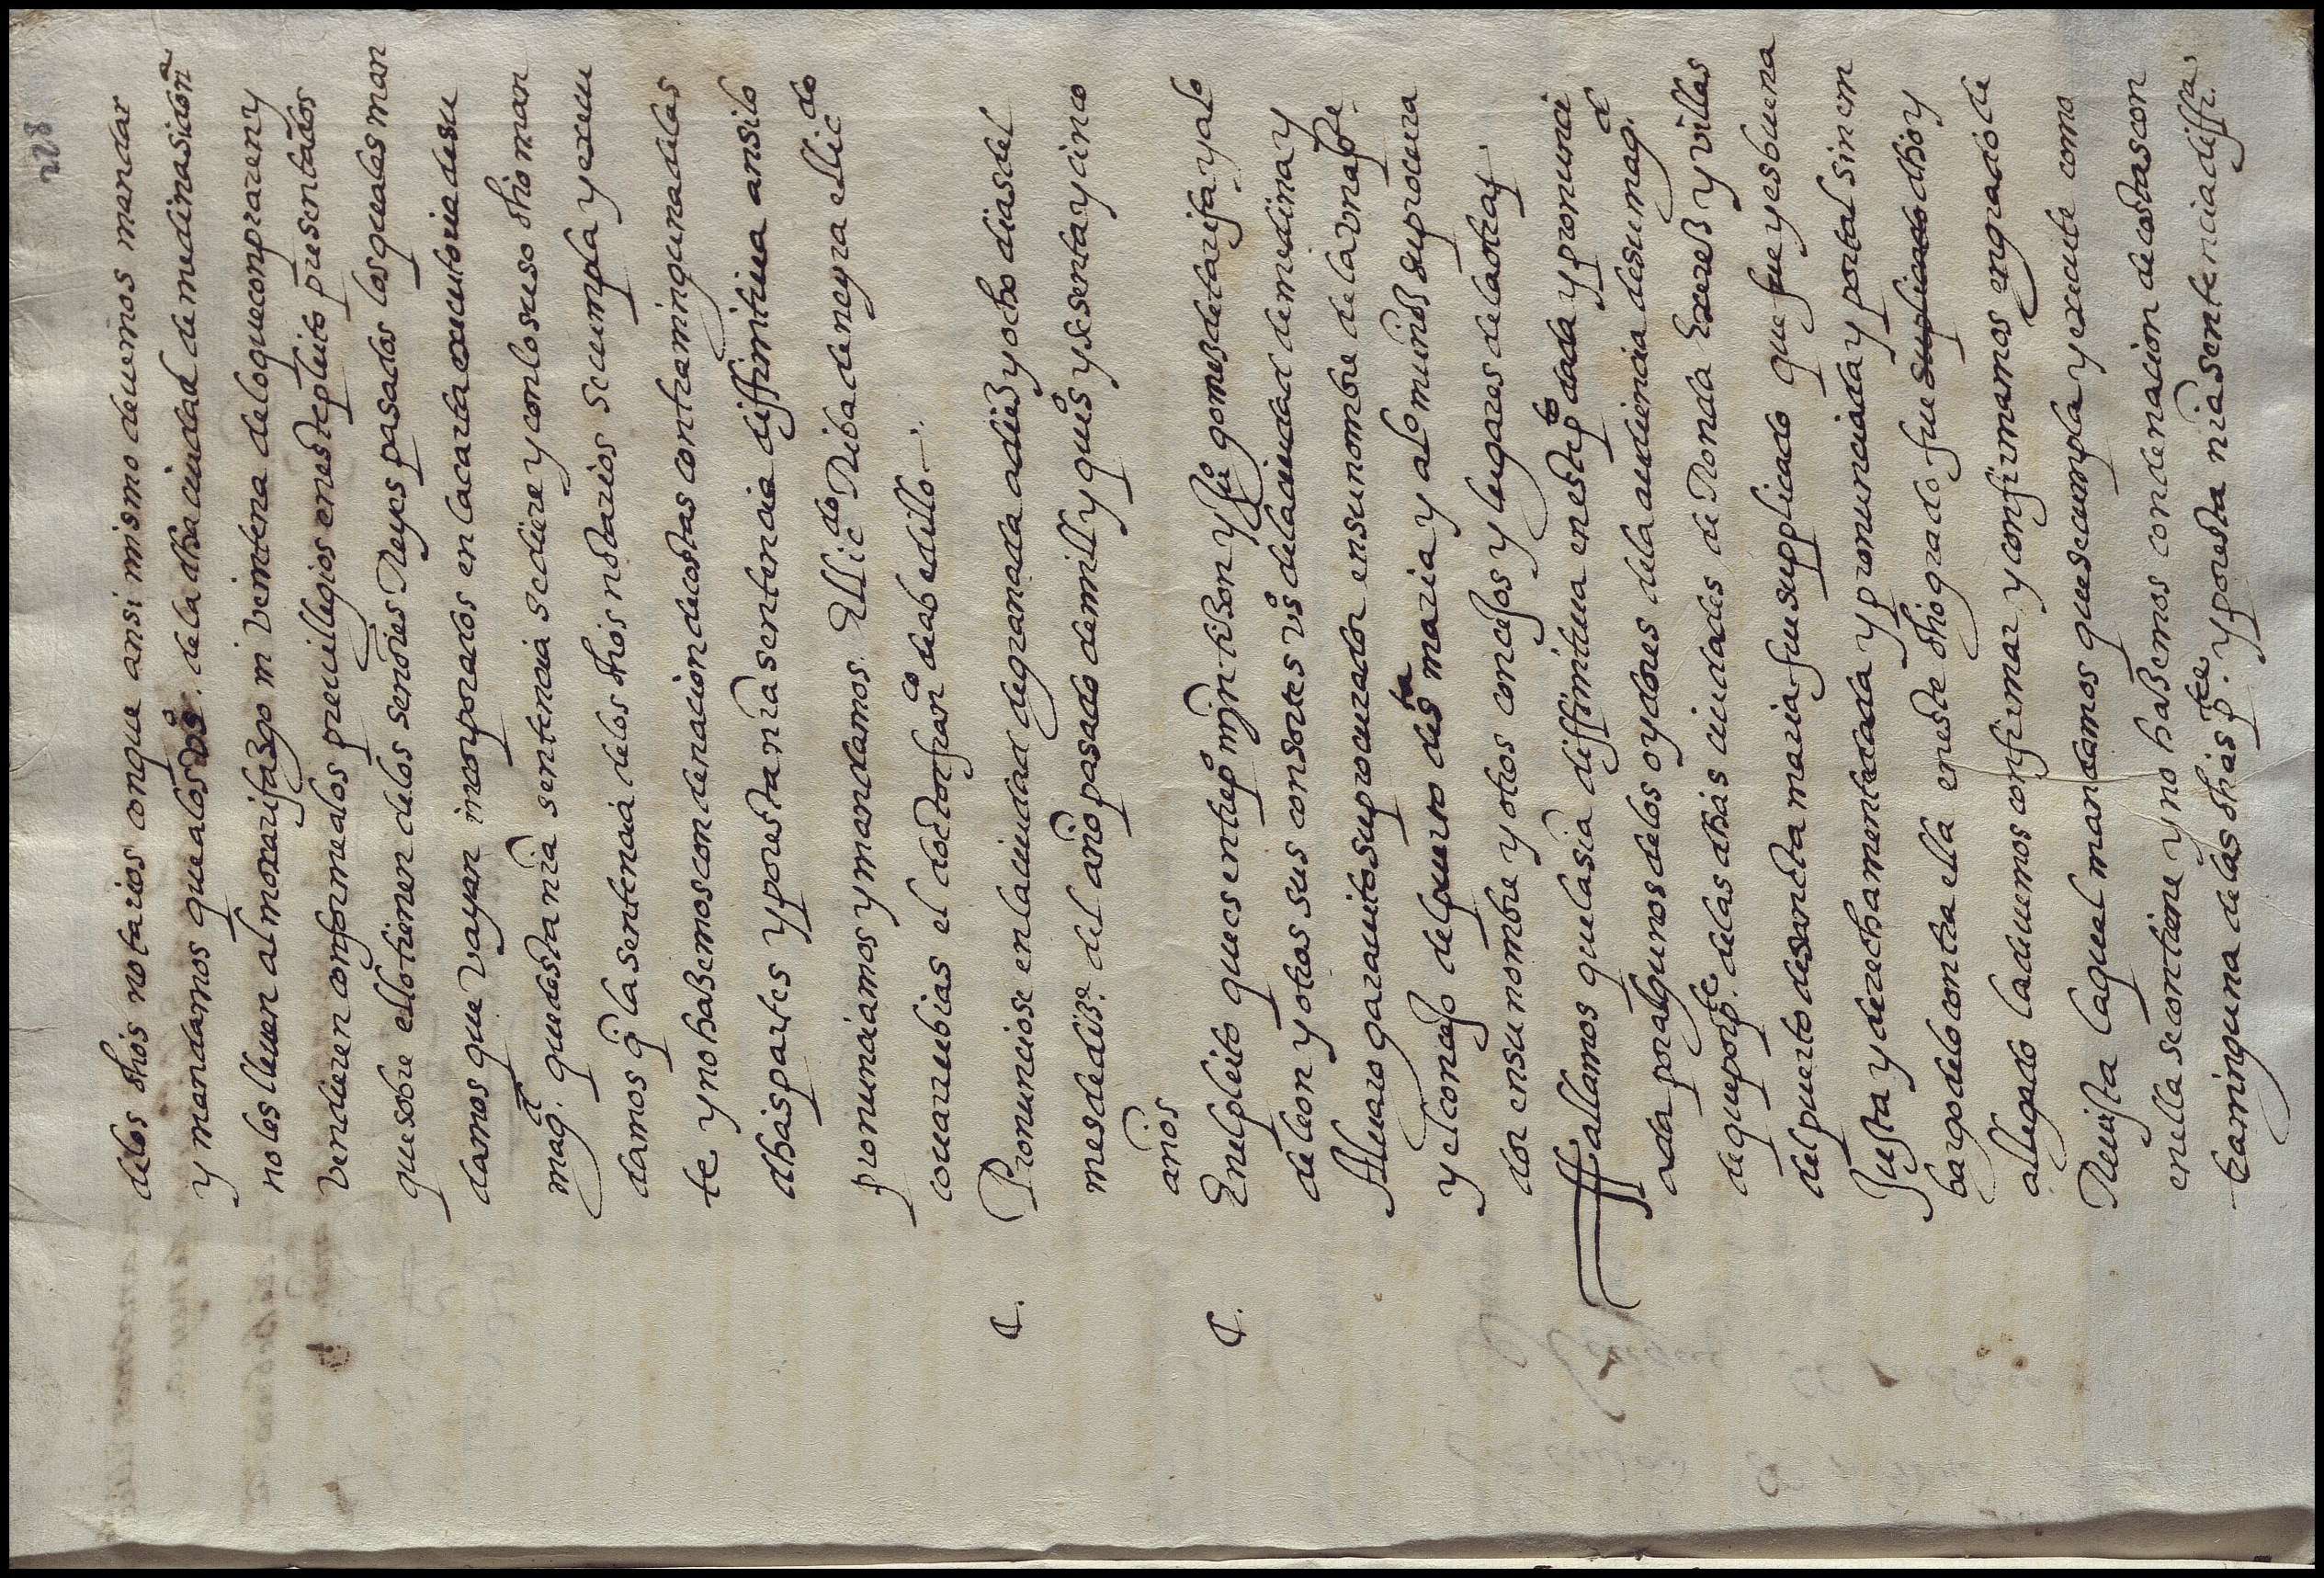 228
delos dhōs notarios conque ansi mismo deuemos mandar
y mandamos que alos vºs. dela dha ciudad de medinasidonª
no les lleuen almoxarifazgo ni veintena delo que conpraren y
vendieren conforme alos preuillegios eneste pleito presentados
que sobre ello tienen delos señores Reyes pasados los quales man
damos que vayan incorporados en la carta executoria de su
magᵗ. que desta nr̄a sentencia se diere y con lo suso dho man
damos q̄ la sentencia delos dhos notarios se cumpla y execu
te y no hazemos condenacion de costas contra ninguna delas
dhas partes y por esta nr̄a sentencia diffinitiua ansi lo
pronunciamos y mandamos. El licᵈᵒ Riba de neyra el licᵈᵒ
couarrubias el doctor franᶜᵒ de abedillo
C. Pronunciose en la ciudad de granada a diez y ocho dias del
mes de dizᵉ. del año pasado de mill y quiºs y sesenta y cinco
años
C. En el pleito que es entre pº min tizon y fuº gomes de tarifa y alº
de leon y otros sus consortes vºs dela ciudad de medina y
Aluaro garauito su procurador en su nombre dela vna pᵉ.
y el concejo del puerto de sᵗᵃ maria y alº muños su procura
dor en su nombre y otros concejos y lugares dela otra
ffallamos que la sīa diffinitiua en este pᵗᵒ dada y pronunci
ada por algunos delos oydores dela audiencia de su magᵈ.
de que por pᵗᵉ. delas dhas ciudades de Ronda Xerez y villas
del puerto de sancta maria fue suppliado que fue y es buena
Justa y derechamente dada y pronunciada y por tal sin em
bargo delo contra ella eneste dho grado fue supliado dho y
allegado la deuemos confirmar y confirmamos en grado de
Reuista la qual mandamos que se cumpla y execute como
en ella se contiene y no hazemos condenacion de costas con
tra ninguna de las dhas pᵗᵉˢ. y por esta nr̄a sentencia diffiʳᵃ.